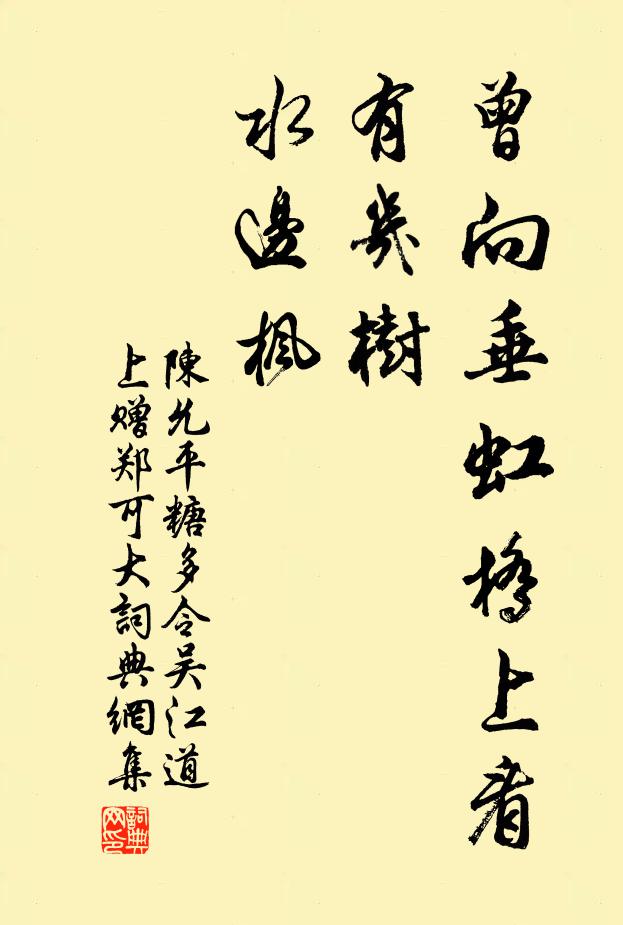 曾向垂虹橋上看
有幾樹
水邊楓
陳允平糖多令吴江道
上赠郑可大詞典網集
詞典
网印